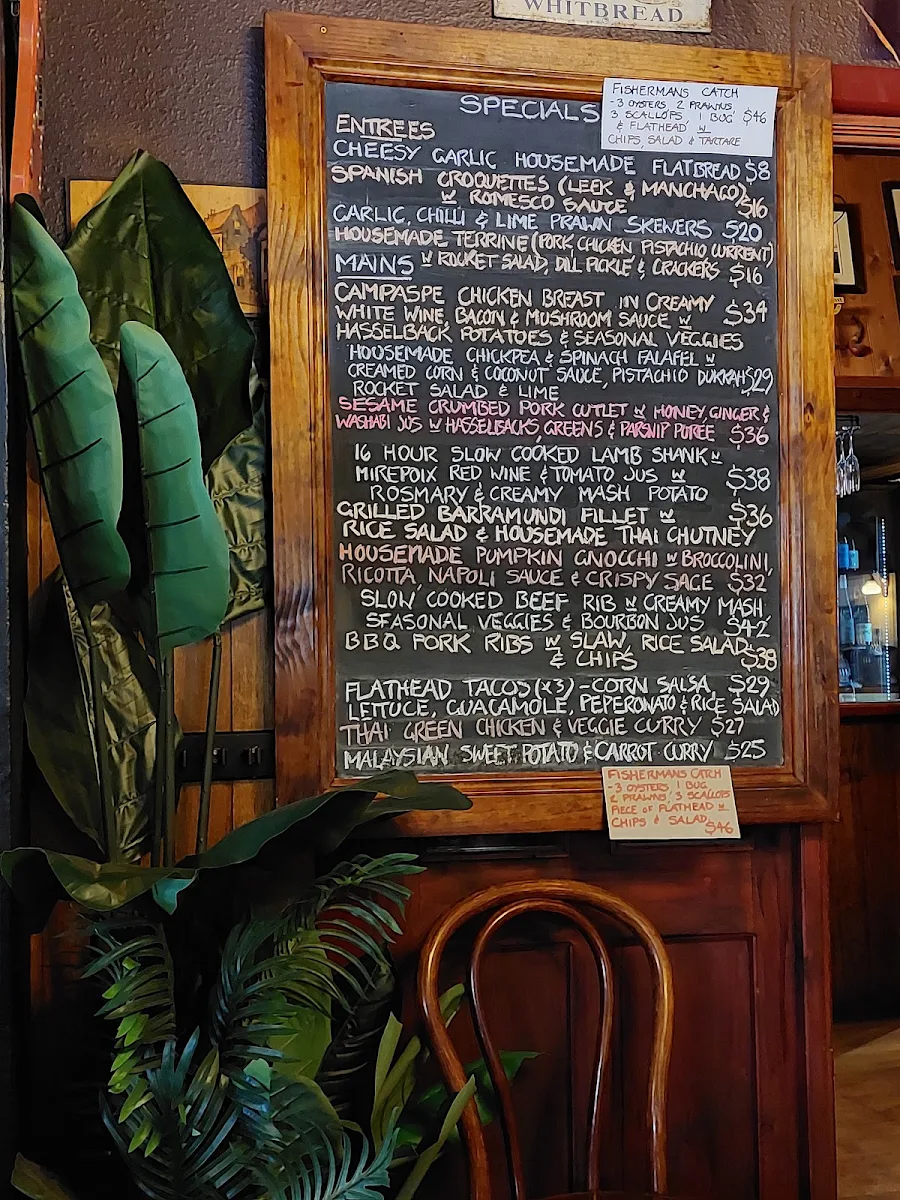 WHITBREAD
SPECIALS
FISHERMANS CATCH
-3 OYSTERS, 2 PRAWNS,
3 SCALLOPS, 1 BUG $46
& FLATHEAD, W
CHIPS, SALAD & TARTARE
ENTREES
CHEESY GARLIC HOUSEMADE FLATBREAD $8
SPANISH CROQUETTES (LEEK & MANCHAGO)
W ROMESCO SAUCE $16
GARLIC, CHILLI & LIME PRAWN SKEWERS $20
HOUSEMADE TERRINE (PORK CHICKEN PISTACHIO CURRENT)
W ROCKET SALAD, DILL PICKLE & CRACKERS $16
MAINS
CAMPASPE CHICKEN BREAST IN CREAMY $34
WHITE WINE, BACON & MUSHROOM SAUCE W
HASSELBACK POTATOES & SEASONAL VEGGIES
HOUSEMADE CHICKPEA & SPINACH FALAFEL W
CREAMED CORN & COCONUT SAUCE, PISTACHIO DUKKAH $29
ROCKET SALAD & LIME
SESAME CRUMBED PORK CUTLET W HONEY, GINGER &
WASHABI JUS W HASSELBACKS, GREENS & PARSNIP PUREE $36
16 HOUR SLOW COOKED LAMB SHANK W
MIREPOIX RED WINE & TOMATO JUS W $38
ROSMARY & CREAMY MASH POTATO
GRILLED BARRAMUNDI FILLET W $36
RICE SALAD & HOUSEMADE THAI CHUTNEY
HOUSEMADE PUMPKIN GNOCCHI W BROCCOLINI,
RICOTTA, NAPOLI SAUCE & CRISPY SAGE $32
SLOW COOKED BEEF RIB W CREAMY MASH
SEASONAL VEGGIES & BOURBON JUS $42
BBQ PORK RIBS W SLAW, RICE SALAD $38
& CHIPS
FLATHEAD TACOS (x3) - CORN SALSA, $29
LETTUCE, GUACAMOLE, PEPERONATO & RICE SALAD
THAI GREEN CHICKEN & VEGGIE CURRY $27
MALAYSIAN SWEET POTATO & CARROT CURRY $25
FISHERMANS CATCH
-3 OYSTERS 1 BUG
2 PRAWNS, 3 SCALLOPS
PIECE OF FLATHEAD W
CHIPS & SALAD $46